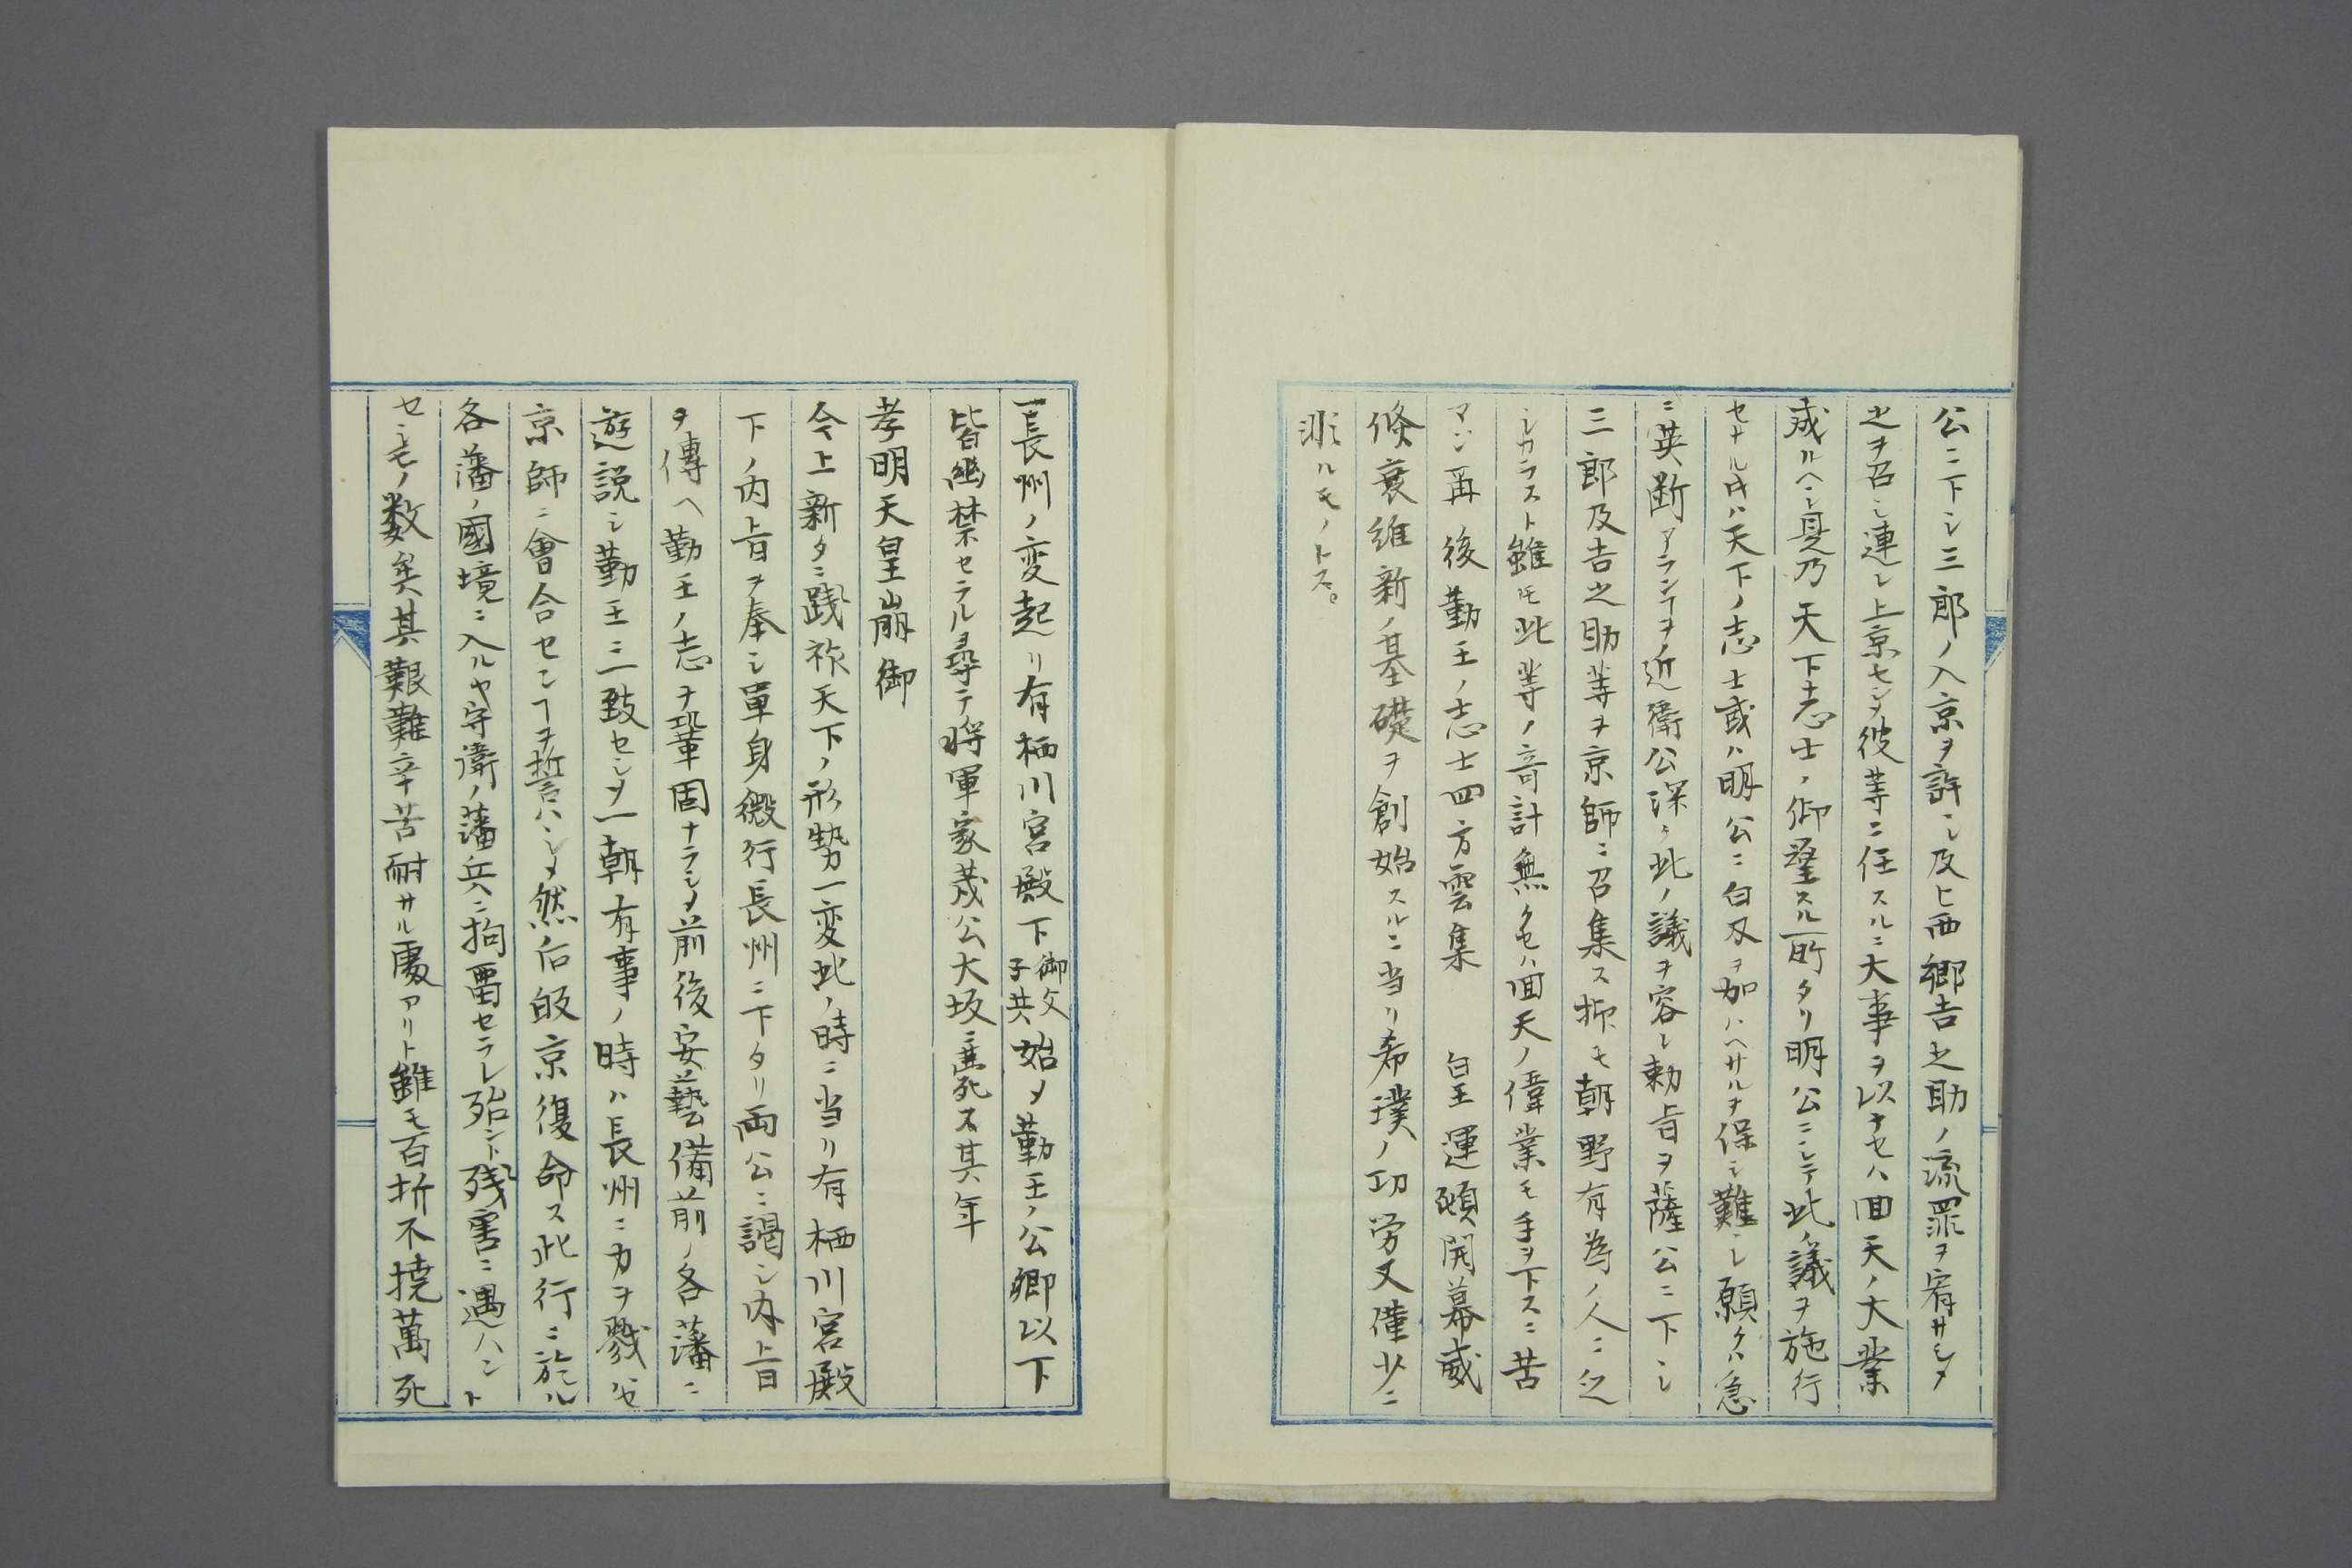 公ニ下シ三郎ノ入京ヲ許シ及ヒ西郷吉之助ノ流罪ヲ宥サシメ
之ヲ召シ連レ上京セシメ彼等ニ任スルニ大事ヲ以ナセハ回天ノ大業
成ルヘシ是乃天下志士ノ仰望スル所タリ明公ニシテ此ノ議ヲ施行
セサル時ハ天下ノ志士或ハ明公ニ白刃ヲ加ハヘサルヲ保シ難シ願クハ急
ニ英断アランヿヲ近衛公深ク此ノ議ヲ容レ勅旨ヲ薩公ニ下シ
三郎及吉之助等ヲ京師ニ召集ス抑モ朝野有為ノ人ニ乏
シカラスト雖ㇳモ此等ノ奇計無クセハ回天ノ偉業モ手ヲ下スニ苦
マン再後勤王ノ志士四方雲集 皇運頓開幕威
倏衰維新ノ基礎ヲ創始スルニ当リ希璞ノ功労又僅少ニ
非ルモノトス。
一長州ノ変起リ有栖川宮殿下御父子共始メ勤王ノ公卿以下
皆幽禁セラル尋テ将軍家茂公大坂ニ薨死ス其年
孝明天皇崩御
今上新タニ踐祚天下ノ形勢一変此ノ時ニ当リ有栖川宮殿
下ノ内旨ヲ奉シ單身微行長州ニ下タリ両公ニ謁シ内旨
ヲ傳ヘ勤王ノ志ヲ鞏固ナラシメ前後安藝備前ノ各藩ニ
遊説シ勤王ニ一致セシメ一朝有事ノ時ハ長州ニ力ヲ戮セ
京師ニ會合センヿヲ誓ハシメ然ル后皈京復命ス此行ニ於ル
各藩ノ國境ニ入ルヤ守衛ノ藩兵ニ拘畱セラレ殆ント残害ニ遇ハント
セシモノ数矣其艱難辛苦耐サル處アリト雖モ百折不撓萬死